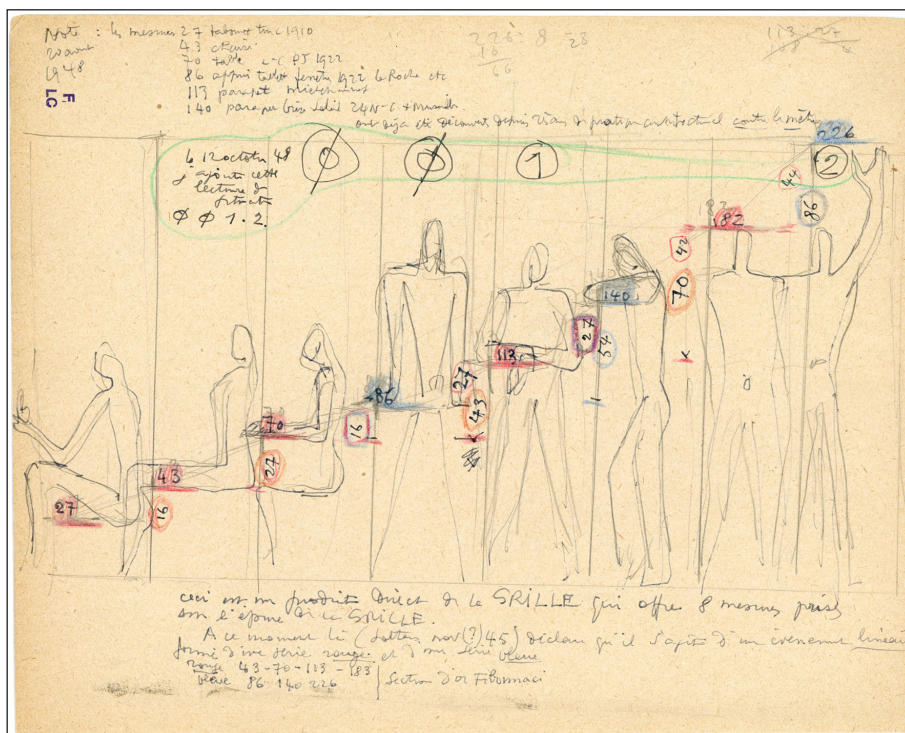 Note : les mesures 27 tabouret turc 1910
20 août 43 chaise
1948 70 table L-C PJ 1922
86 appui tablet fenêtre 1922 La Roche etc
113 parapet
140 parapet brise soleil 24 N-C + Marseille
ont déjà été découverts depuis 25 ans de pratique architecturale contre le mètre
F.
LC
226 - 8 - 28
16
66
113 - 27
226
Le 12 octobre 48
j'ajoute cette
lecture de
situation
Ø Ø 1 . 2 .
0
0
1
2
44
86
182
42
70
140
27
54
113
27
43
86
16
70
27
43
16
27
ceci est un produit direct de la GRILLE qui offre 8 mesures prises
sur l'épure de la GRILLE.
A ce moment là (Lettres nov(?) 45) déclare qu'il s'agit d'un événement linéaire
formé d'une série rouge et d'une série bleue
rouge 43-70-113-183
bleue 86-140-226
Section d'or Fibonnaci